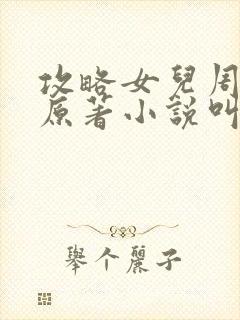 攻略女兒周
原著小說叫
舉个麗子